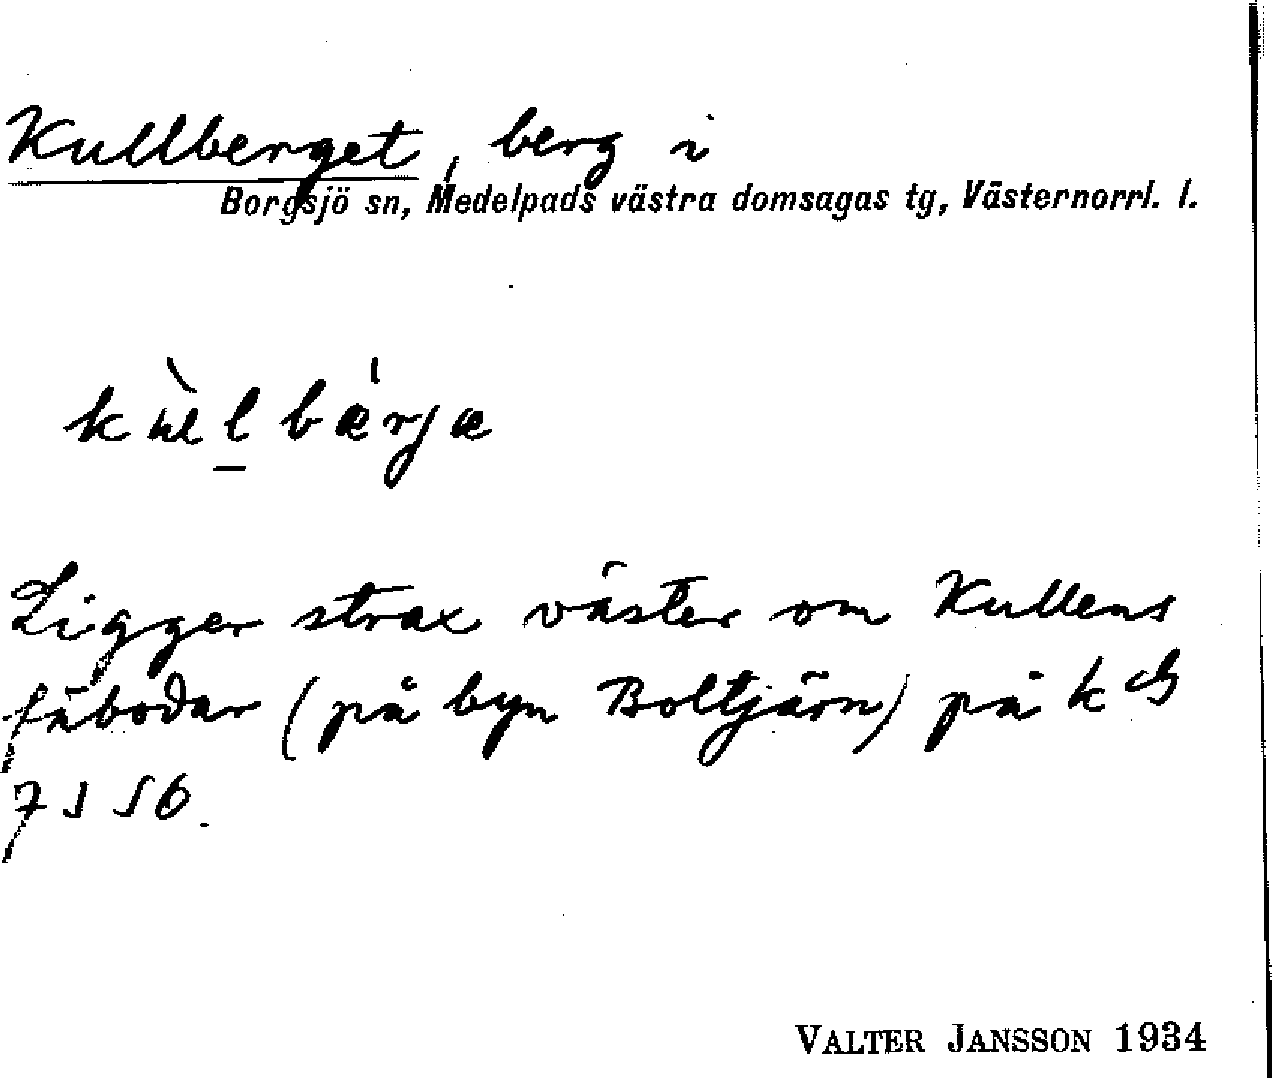 Kullberget, berg i
Borgsjö sn, Medelpads västra domsagas tg, Västernorrl. l.
bærjæ
Ligger strax väster om Kullens
fäbodar (på byn Boltjärn) på k
VALTER JANSSON 1934